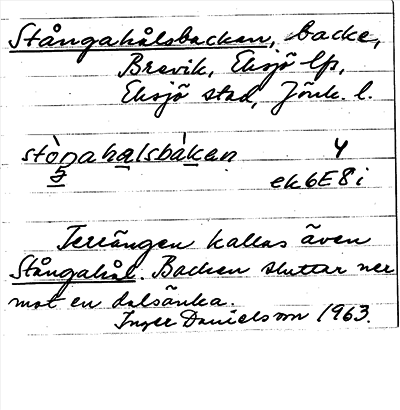 Stångahålsbacken, backe,
Brevik, Eksjö lfs,
Eksjö stad, Jönk. l.
stòŋahalsbàkan 4
ek6E8i
Terrängen kallas även
Stångahål. Backen sluttar ner
mot en dalsänka.
Inger Danielsson 1963.